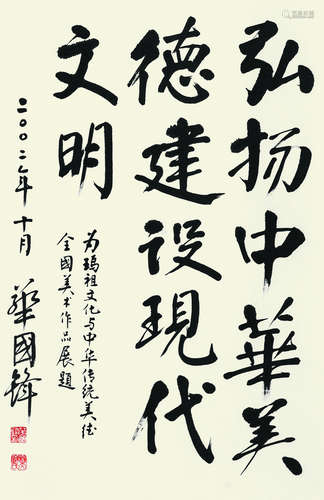 弘扬中華美
德建设現代
文明
为瑪祖文化与中华传统美德
全國美术作品展題
二〇〇二年十月
華國鋒